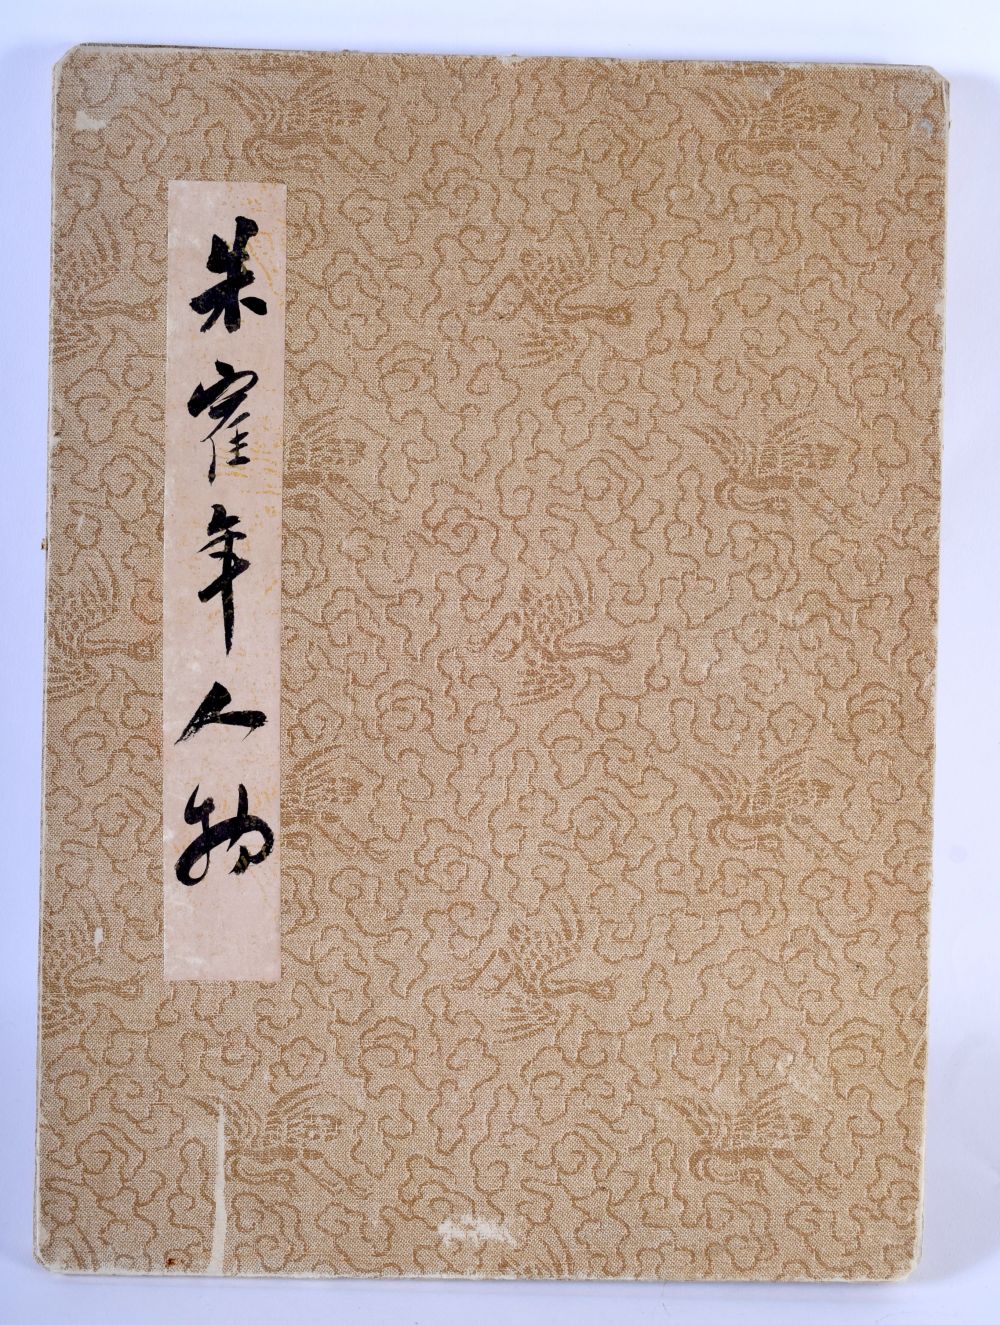 朱寉年人物